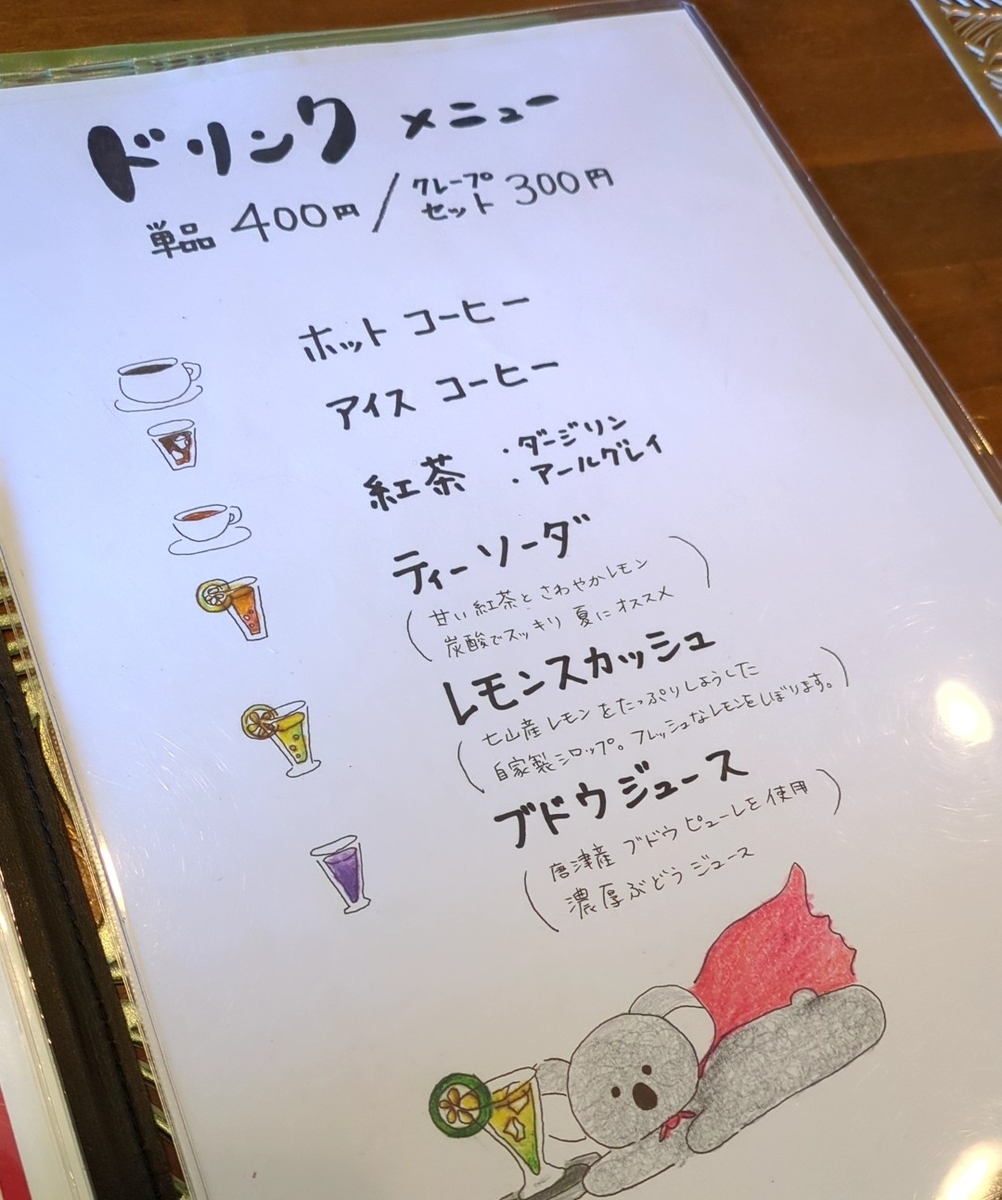 ドリンク メニュー
単品 400円 / クレープセット 300円
ホット コーヒー
アイス コーヒー
紅茶 ・ダージリン
・アールグレイ
ティーソーダ
(甘い紅茶とさわやかレモン
炭酸でスッキリ 夏にオススメ)
レモンスカッシュ
(七山産レモンをたっぷりしようした
自家製シロップ。フレッシュなレモンをしぼります。)
ブドウジュース
(唐津産 ブドウ ピューレを使用
濃厚ぶどうジュース)